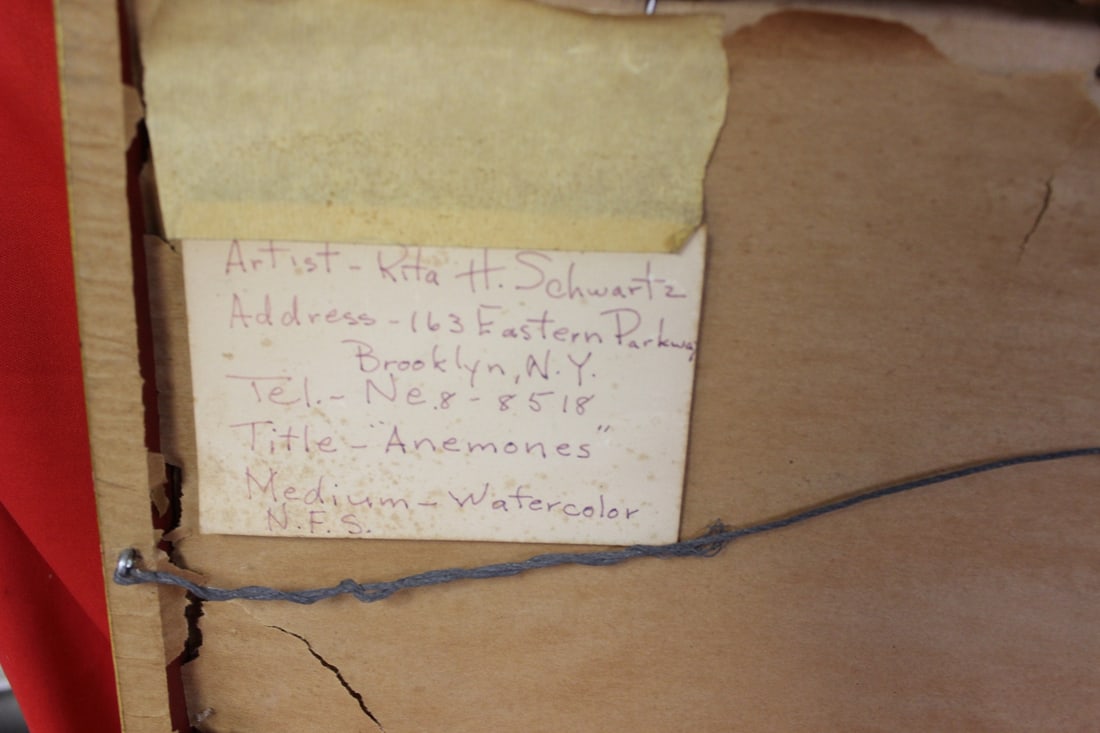 Artist - Rita H. Schwartz
Address - 163 Eastern Parkway
Brooklyn, N.Y.
Tel. - Ne.8 - 8518
Title - "Anemones"
Medium - Watercolor
N.F.S.